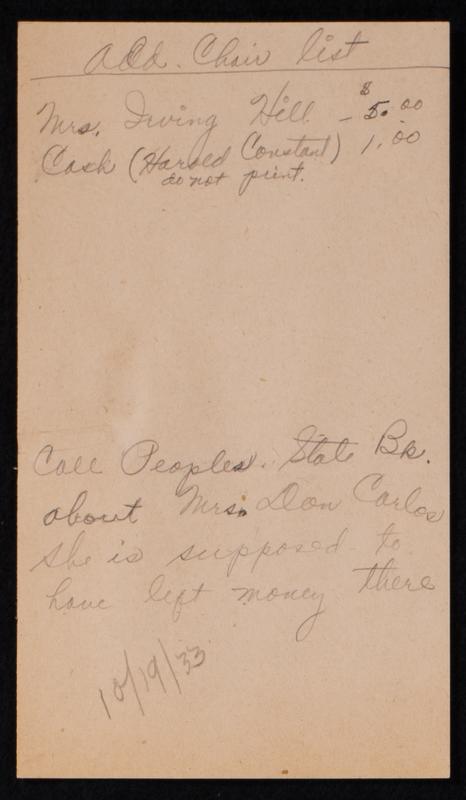 Add. Chair list
Mrs. Irving Hill - $5.00
Cash (Harold Constant) 1.00
do not print.
Call Peoples. State Bk.
about Mrs. Don Carlos
she is supposed to
have left money there
10/19/33